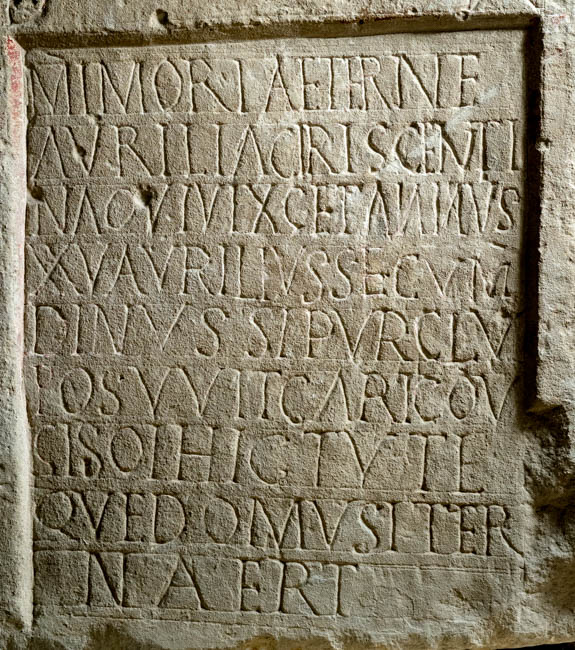 MIMORIAETERNE
AVRILIACIRISCENTI
NAQVIVIXCETANNNVS
XVAVRILIVSSECVM
DINVSSIPVRCLV
FOSVVITCARICOV
CISOIHICTVTE
QVEDOMVSITER
NAERT